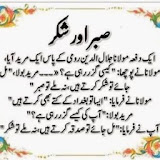 صبر اور شکر
ایک دفعہ مولانا جلال الدین رومی کے پاس ایک مرید آیا،
مولانا نے پوچھا: "کیسی گزر رہی ہے؟" مرید بولا: "مل
جائے تو شکر کرتے ہیں، نہ ملے تو صبر"
مولانا نے فرمایا: "ایسا تو بغداد کے کتے بھی کرتے ہیں"
مرید بولا: "آپ کی کیسے گزر رہی ہے؟"
آپ نے فرمایا: "مل جائے تو صدقہ کرتے ہیں، نہ ملے تو شکر"